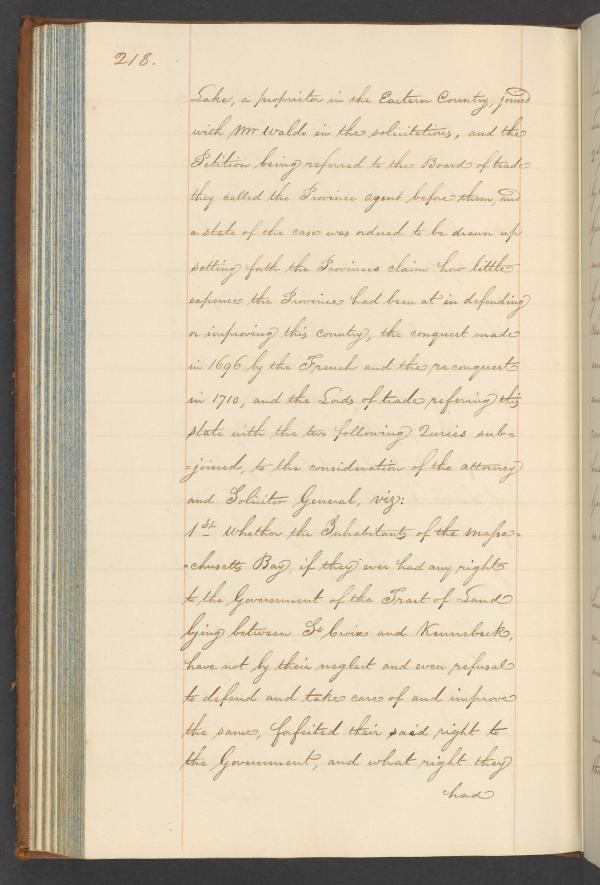 218.
Lake, a proprietor in the Eastern Country, joined
with Mr Waldo in the solicitations, and the
Petition being referred to the Board of trade
they called the Province agent before them, and
a state of the case was ordered to be drawn up
setting forth the Provinces claim how little
expence the Province had been at in defending
or improving this country, the conquest made
in 1696 by the French and the reconquest
in 1710, and the Lords of trade refering this
state with the two following Quries sub=
=joined, to the consideration of the attorney
and Soliciter General, viz:
1st Whether the Inhabitants of the Massa=
=chusetts Bay, if they ever had any right
to the Government of the Tract of Land
lying between St Croix and Kennebeck,
have not by their neglect and even refusal
to defend and take care of and improve
the same, forfeited their said right to
the Government, and what right they
had